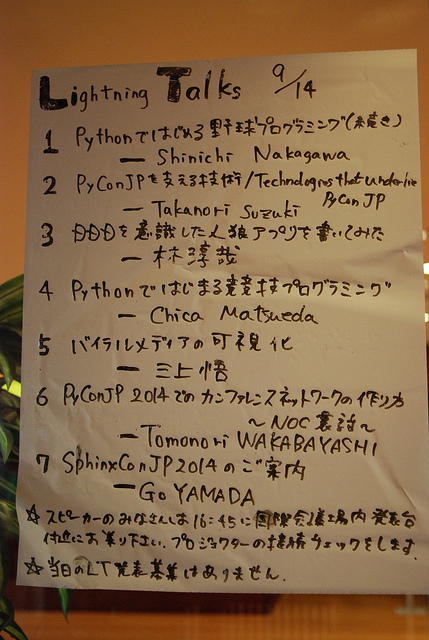 Lightning Talks 9/14
1 Pythonではじめる野球プログラミング(続き)
— Shinichi Nakagawa
2 PyConJPを支える技術/Technologies that underlie
PyCon JP
— Takanori Suzuki
3 DDDを意識した人狼アプリを書いてみた
— 林淳哉
4 Pythonではじまる競技プログラミング
— Chica Matsueda
5 バイラルメディアの可視化
— 三上悟
6 PyConJP 2014でのカンファレンスネットワークの作り方
～NOC裏話～
— Tomonori WAKABAYASHI
7 SphinxConJP2014のご案内
— Go YAMADA
☆スピーカーのみなさんは16:45に国際会議場内発表台
付近にお集り下さい。プロジェクターの接続チェックをします。
☆当日のLT発表募集はありません。